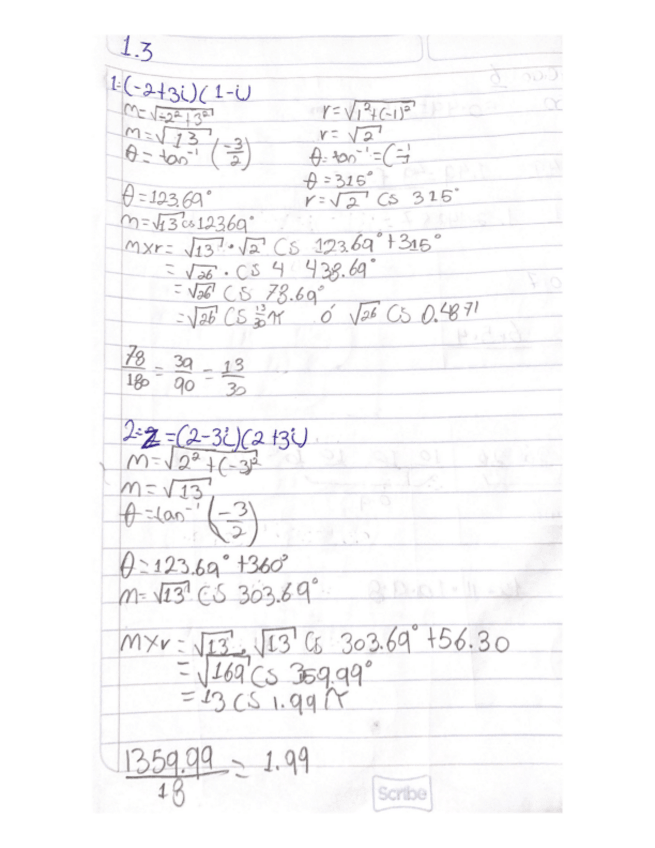 1.3
1: (-2+3i)(1-i)
m=√-2²+3²    r=√1²+(-1)²
m=√13    r=√2
θ=tan⁻¹(-3/2)    θ=tan⁻¹=(-1/1
θ=315°
θ=123.69°    r=√2 Cs 315°
m=√13 cs 123.69°
mxr=√13·√2 Cs 123.69°+315°
=√26 · Cs 4 438.69°
=√26 Cs 78.69°
=√26 Cs 13/30 π ó √26 Cs 0.4871
78/180 = 39/90 = 13/30
2: z=(2-3i)(2+3i)
m=√2²+(-3)²
m=√13
θ=tan⁻¹(-3/2)
θ=123.69°+360°
m=√13 Cs 303.69°
mxr=√13 · √13 Cs 303.69°+56.30
=√169 Cs 359.99°
=13 Cs 1.99 π
1359.99/18 = 1.99
Scribe